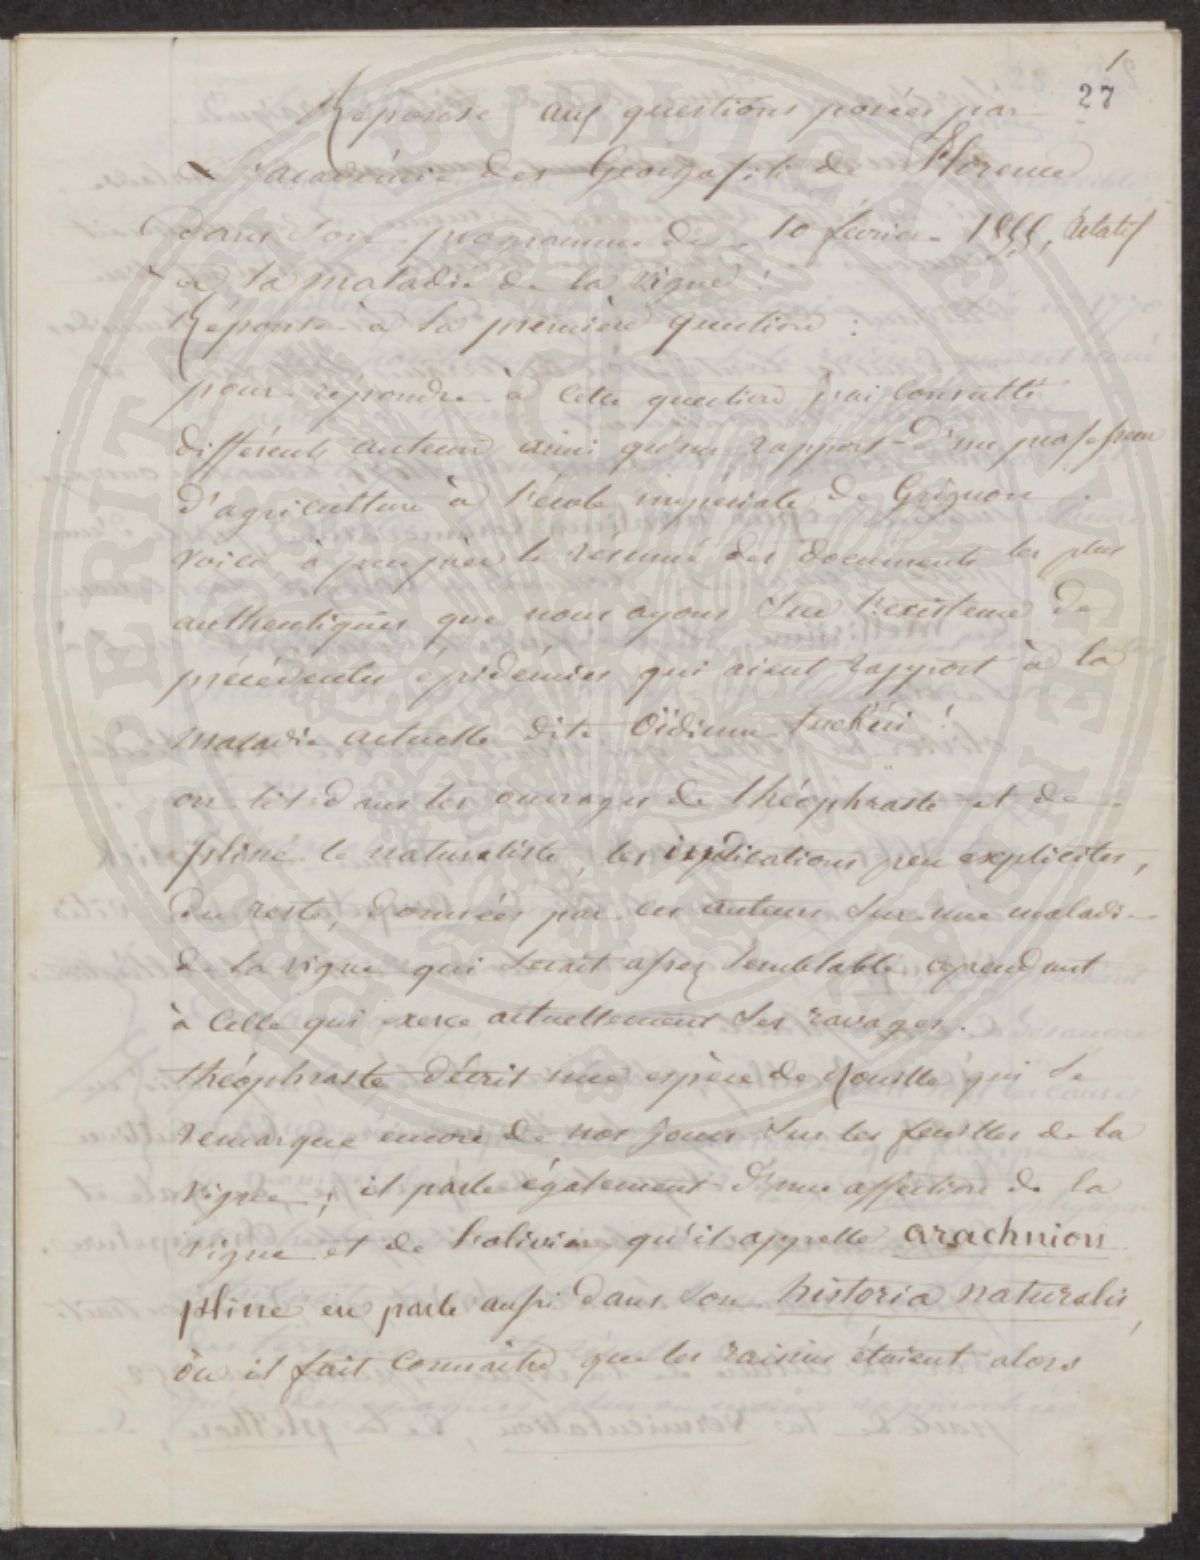 1
27
Réponse aux questions posées par
L'académie des Georgofili de Florence
Dans son programme du 10 février 1855, Relatif
à la maladie de la vigne !
Réponse à la première question :
pour répondre à cette question j'ai consulté
différents auteurs ainsi qu'un rapport d'un professeur
d'agriculture à l'école impériale de Grignon.
voici à peu près le résumé des documents les plus
authentiques que nous ayons sur l'existence de
précédentes épidémies qui aient rapport à la
maladie actuelle dite Oïdium tuckeri !
on lit dans les ouvrages de théophraste et de
pline le naturaliste, les indications peu explicites,
du reste, données par ces auteurs sur une maladie
de la vigne qui serait assez semblable cependant
à celle qui exerce actuellement ses ravages.
théophraste décrit une espèce de Rouille qui se
remarque encore de nos jours sur les feuilles de la
vigne ; il parle également d'une affection de la
vigne et de l'olivier qu'il appelle arachnion
pline en parle aussi dans son historia naturalis,
où il fait connaître que les raisins étaient alors